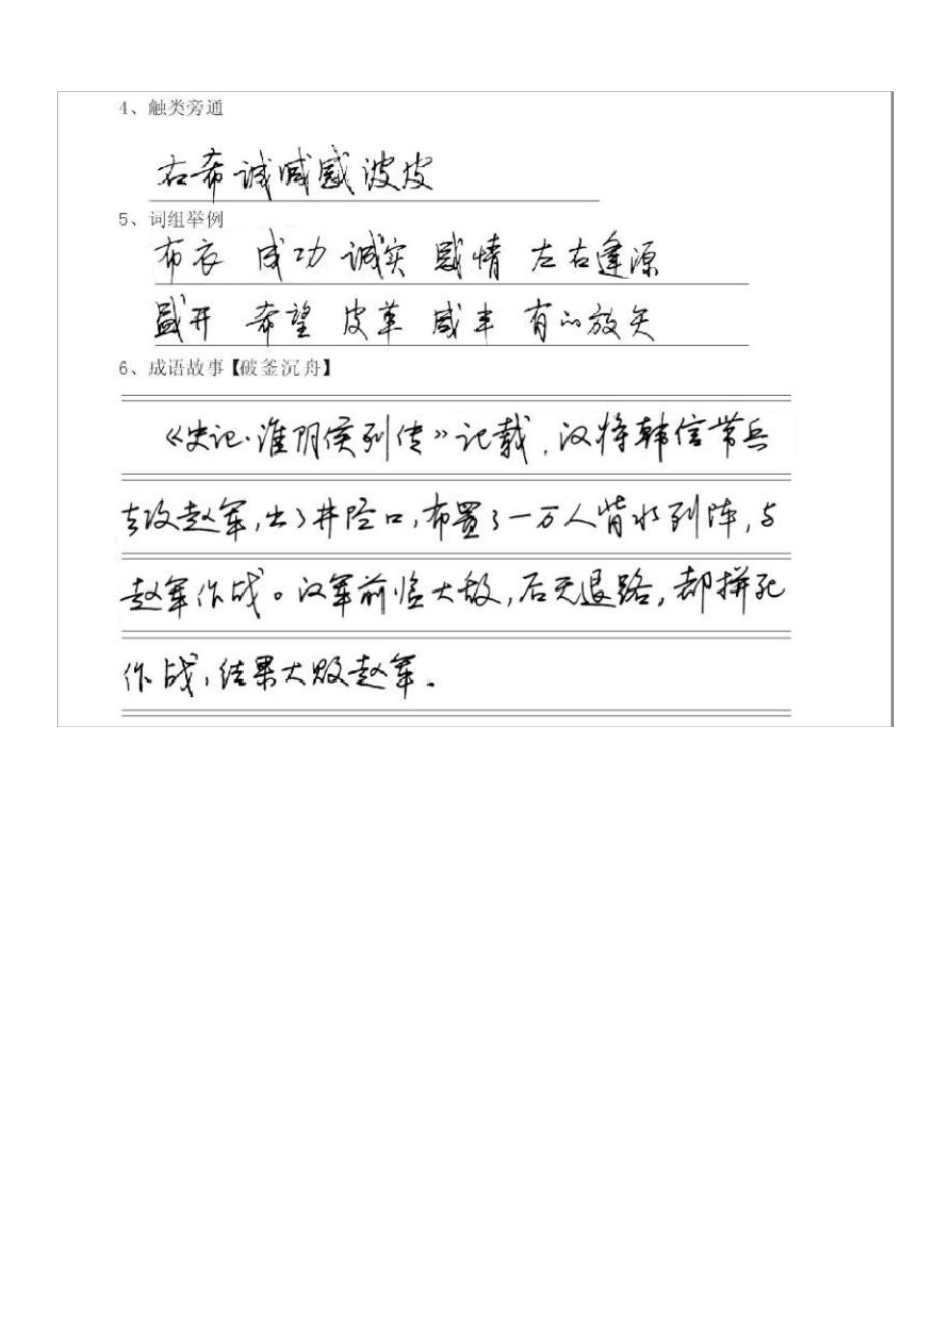 4、触类旁通
右希诚喊感波皮
5、词组举例
布衣 成功 诚实 感情 左右逢源
盛开 希望 皮革 咸丰 有的放矢
6、成语故事【破釜沉舟】
《史记·淮阴侯列传》记载，汉将韩信带兵
去攻赵军，出了井陉口，布置了一万人背水列阵，与
赵军作战。汉军前临大敌，后无退路，都拼死
作战，结果大败赵军.